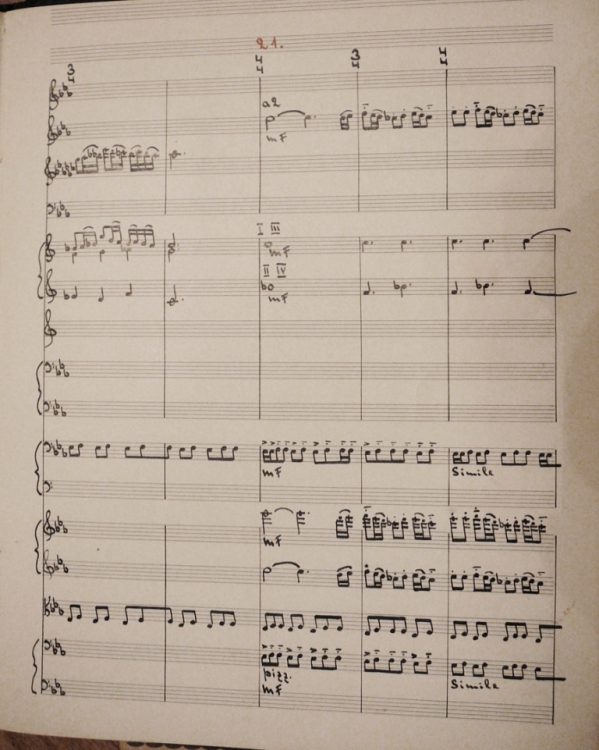 21.
3 4 3 4
4 4 4 4
a2
mF
I III
mF
II IV
mF
mF
Simile
mF
pizz.
mF
Simile